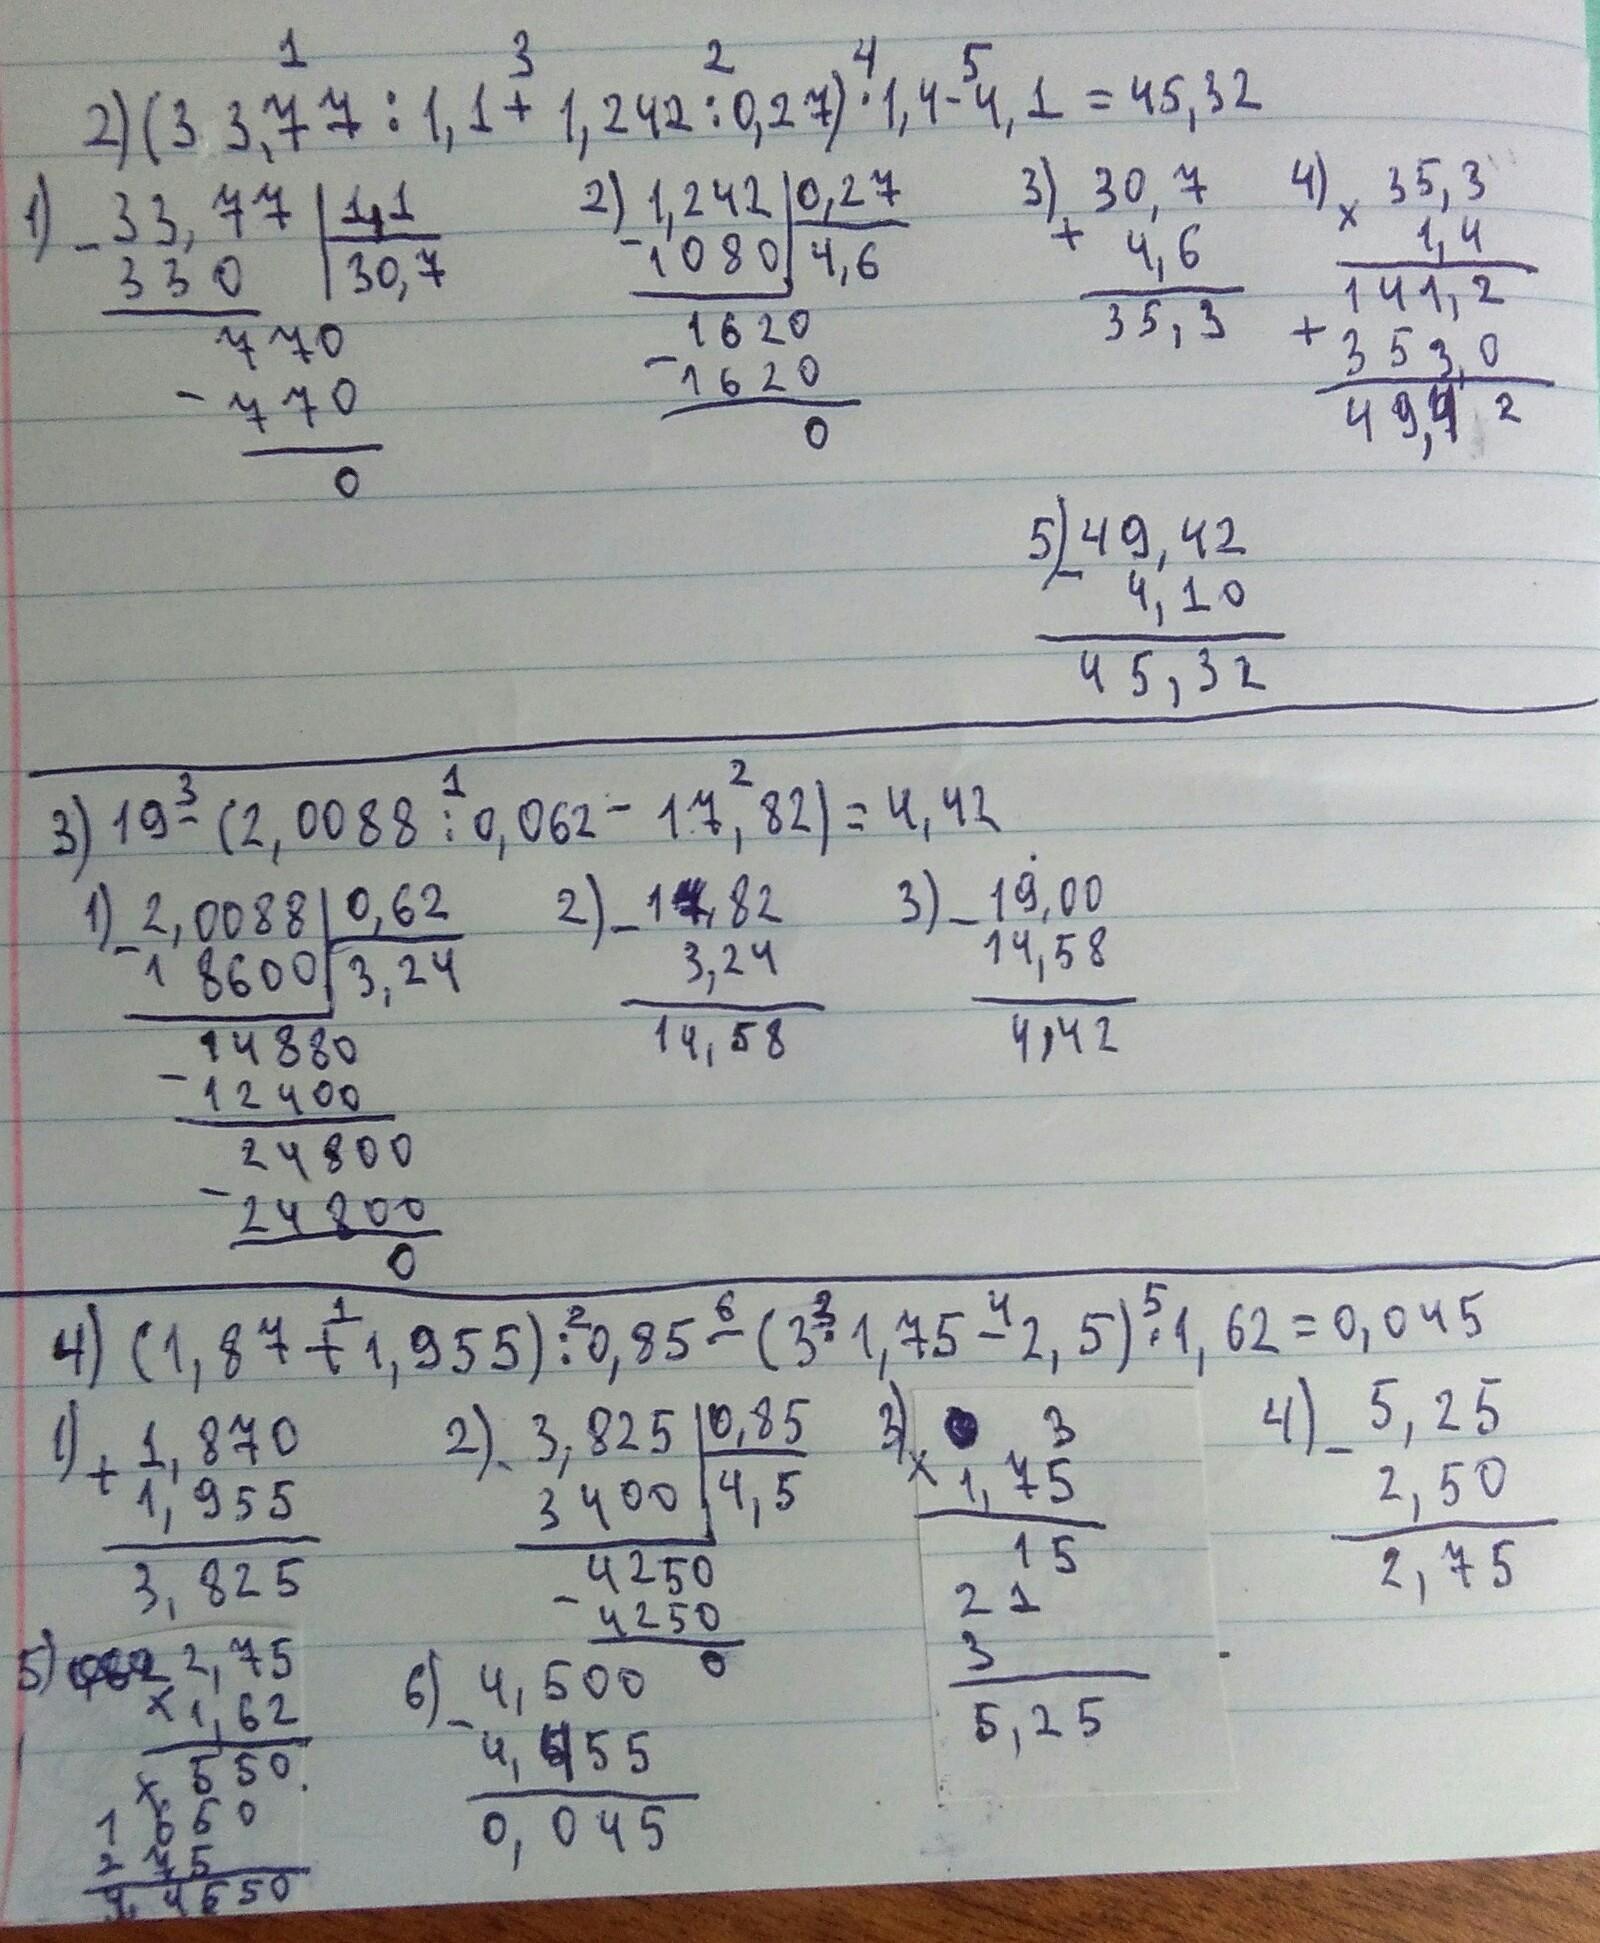 1 3 2 4 5
2) (33,77 : 1,1 + 1,242 : 0,27) · 1,4 - 4,1 = 45,32
1) - 33,77 | 1,1
330 | 30,7
770
- 770
0
2) - 1,242 | 0,27
1080 | 4,6
1620
- 1620
0
3) + 30,7
4,6
35,3
4) × 35,3
1,4
141,2
+ 353,0
49,42
5) - 49,42
4,10
45,32
3 1 2
3) 19 - (2,0088 : 0,062 - 17,82) = 4,42
1) - 2,0088 | 0,62
18600 | 3,24
14880
- 12400
24800
- 24800
0
2) - 17,82
3,24
14,58
3) - 19,00
14,58
4,42
1 2 6 3 4 5
4) (1,87 + 1,955) : 0,85 - (3 · 1,75 - 2,5) · 1,62 = 0,045
1) + 1,870
1,955
3,825
2) - 3,825 | 0,85
3400 | 4,5
4250
- 4250
0
3) × 3
1,75
15
21
3
5,25
4) - 5,25
2,50
2,75
5) 2,75
× 1,62
× 550
1650
275
4,4550
6) - 4,500
4,455
0,045